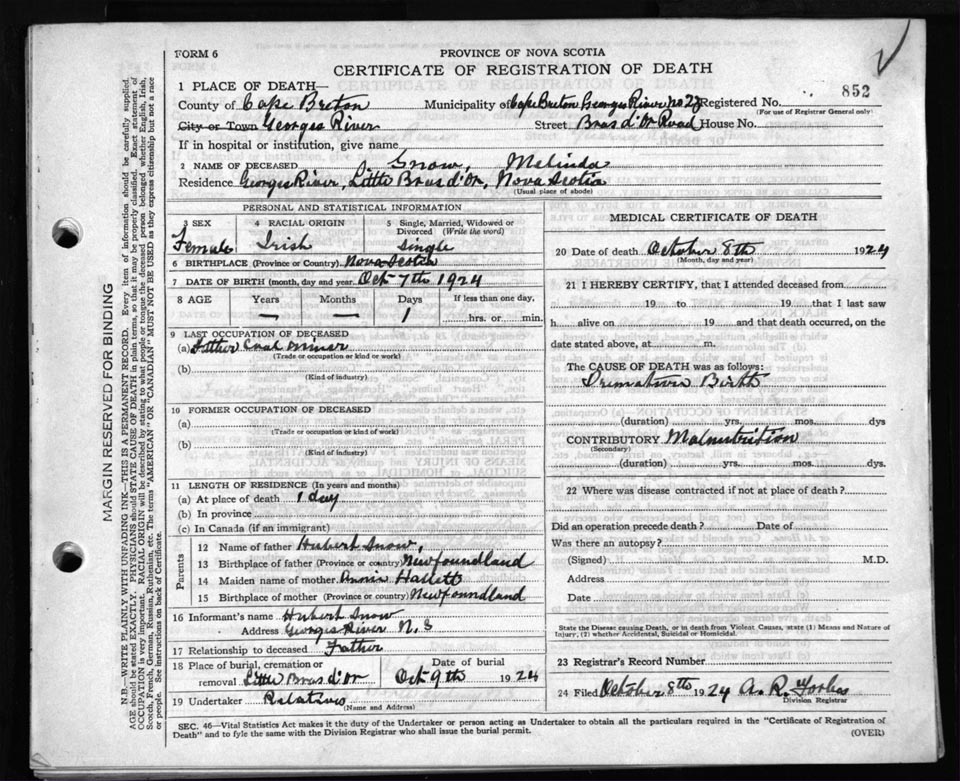 FORM 6
PROVINCE OF NOVA SCOTIA
CERTIFICATE OF REGISTRATION OF DEATH
852
1 PLACE OF DEATH—
County of Cape Breton Municipality of Cape Breton Georges River No 23 Registered No.
(For use of Registrar General only)
City or Town Georges River Street Bras d'Or Road House No.
If in hospital or institution, give name
2 NAME OF DECEASED Snow, Melinda
Residence Georges River, Little Bras d'Or, Nova Scotia
(Usual place of abode)
PERSONAL AND STATISTICAL INFORMATION
3 SEX 4 RACIAL ORIGIN 5 Single, Married, Widowed or Divorced (Write the word)
Female Irish Single
6 BIRTHPLACE (Province or Country) Nova Scotia
7 DATE OF BIRTH (month, day and year) Oct 7th 1924
8 AGE Years Months Days If less than one day,
— — 1 hrs. or min.
9 LAST OCCUPATION OF DECEASED
(a) Father Coal Miner
(Trade or occupation or kind or work)
(b)
(Kind of industry)
10 FORMER OCCUPATION OF DECEASED
(a)
(Trade or occupation or kind of work)
(b)
(Kind of industry)
11 LENGTH OF RESIDENCE (In years and months)
(a) At place of death 1 day
(b) In province
(c) In Canada (if an immigrant)
Parents
12 Name of father Hubert Snow,
13 Birthplace of father (Province or country) Newfoundland
14 Maiden name of mother Annie Hallett
15 Birthplace of mother (Province or country) Newfoundland
16 Informant's name Hubert Snow
Address Georges River N.S
17 Relationship to deceased Father
18 Place of burial, cremation or removal Little Bras d'Or
Date of burial Oct 9th 1924
19 Undertaker Relatives
(Name and Address)
MEDICAL CERTIFICATE OF DEATH
20 Date of death October 8th 1924
(Month, day and year)
21 I HEREBY CERTIFY, that I attended deceased from
19 to 19 that I last saw
h alive on 19 and that death occurred, on the
date stated above, at m.
The CAUSE OF DEATH was as follows:
Premature Birth
(duration) yrs. mos. dys
CONTRIBUTORY Malnutrition
(Secondary)
(duration) yrs. mos. dys.
22 Where was disease contracted if not at place of death?
Did an operation precede death? Date of
Was there an autopsy?
(Signed) M.D.
Address
Date
State the Disease causing Death, or in death from Violent Causes, state (1) Means and Nature of Injury, (2) whether Accidental, Suicidal or Homicidal.
23 Registrar's Record Number
24 Filed October 8th 1924 A. R. Forbes
Division Registrar
SEC. 46—Vital Statistics Act makes it the duty of the Undertaker or person acting as Undertaker to obtain all the particulars required in the "Certificate of Registration of
Death" and to fyle the same with the Division Registrar who shall issue the burial permit.
(OVER)
MARGIN RESERVED FOR BINDING
N.B.—WRITE PLAINLY WITH UNFADING INK—THIS IS A PERMANENT RECORD. Every item of information should be carefully supplied.
AGE should be stated EXACTLY. PHYSICIANS should STATE CAUSE OF DEATH in plain terms, so that it may be properly classified. Exact statement of
OCCUPATION is very important. RACIAL ORIGIN will be described by stating to what people or tongue the deceased person belonged whether English, Irish,
Scotch, French, German, Russian, Ruthenian, etc. The terms "AMERICAN" OR "CANADIAN" MUST NOT BE USED as they express citizenship but not a race
or people. See instructions on back of Certificate.